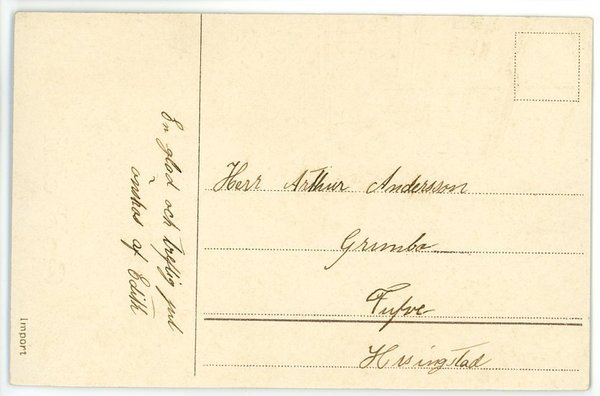 En glad och treflig jul
önskas af Edith
Herr Arthur Andersson
Grimbo
Tufve
Hisingstad
import